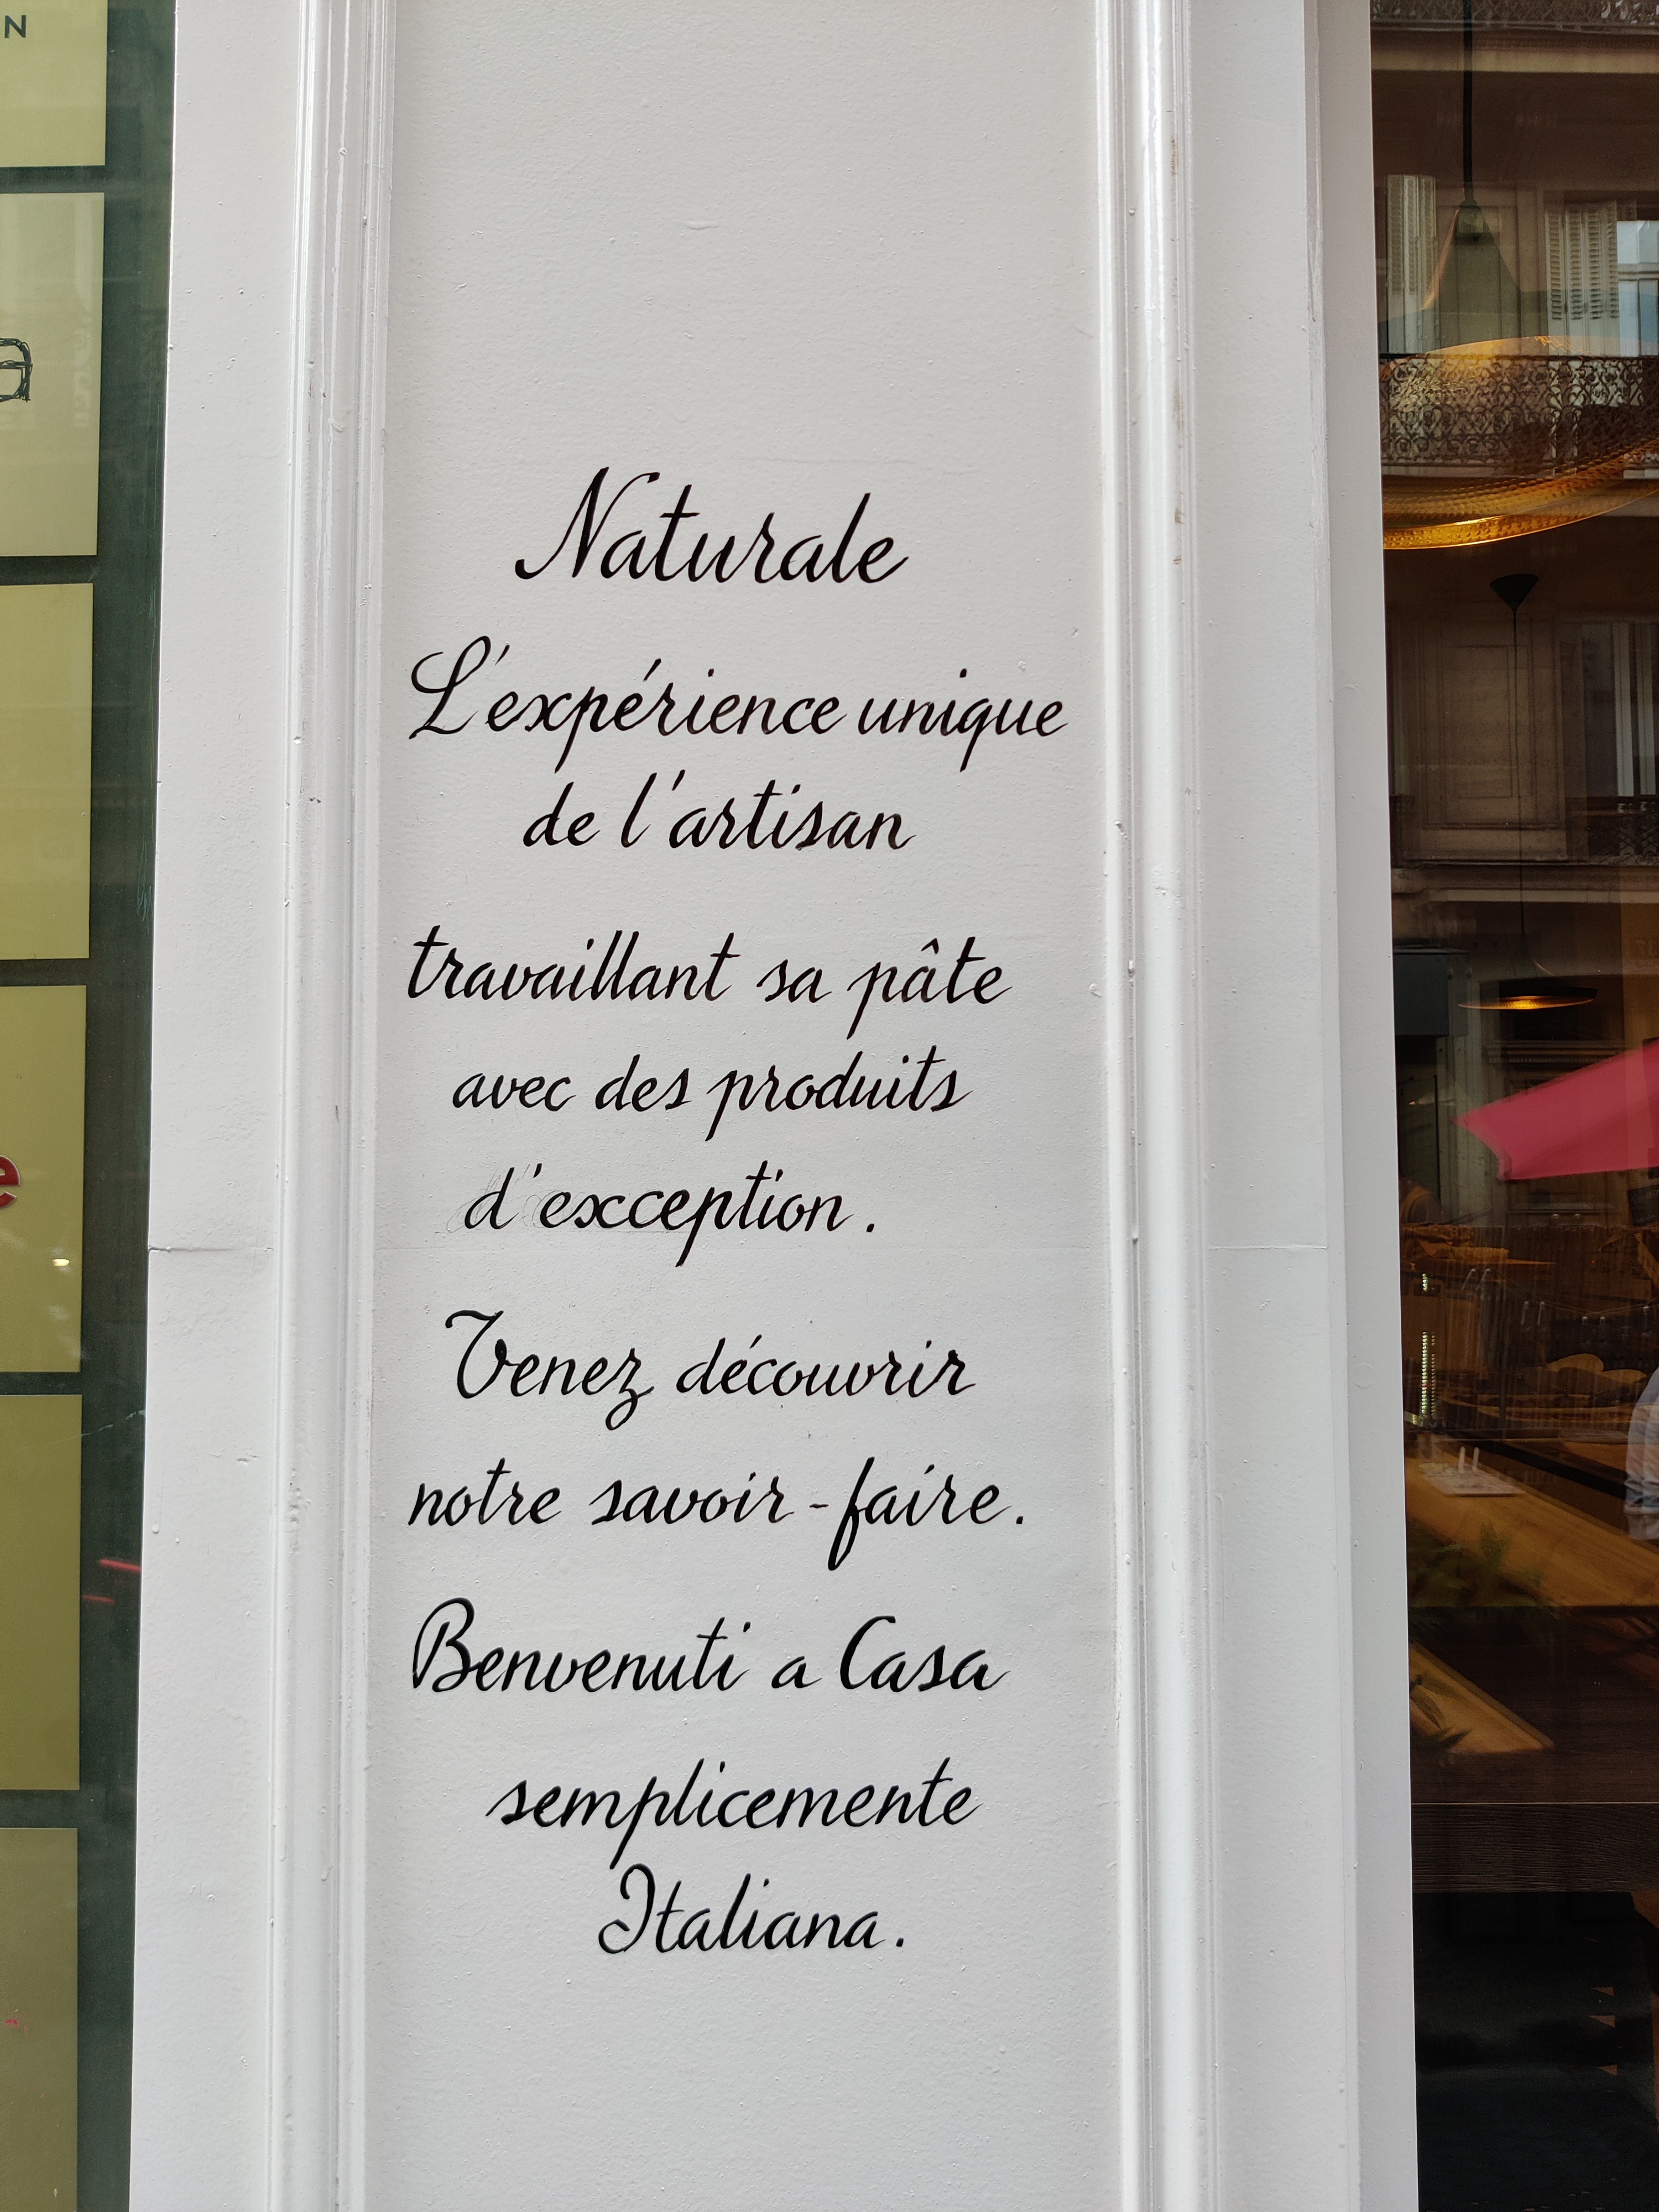 N
a
e
Naturale
L'expérience unique
de l'artisan
travaillant sa pâte
avec des produits
d'exception.
Venez découvrir
notre savoir-faire.
Benvenuti a Casa
semplicemente
Italiana.